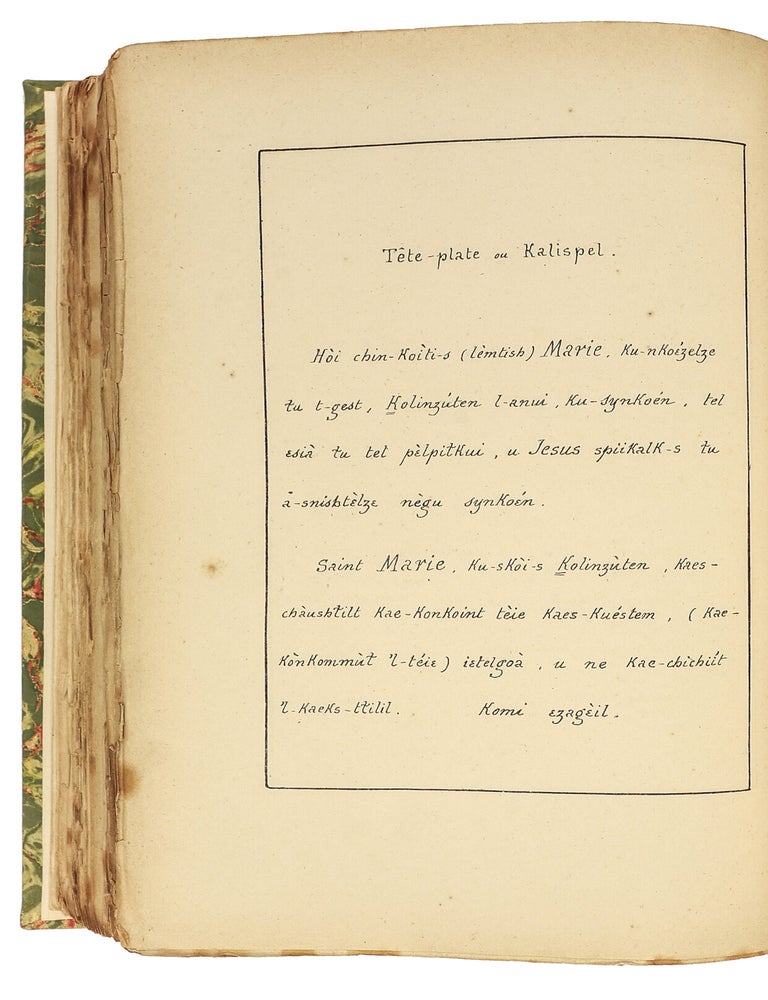 Tête-plate ou Kalispel.
Hòi chin-Koìti-s (lèmtish) Marie, Ku-nKoézelze
ƚu t-gest, Kolinzúten l-anui, Ku-synKoén, tel
esià ƚu tel pèlpitƚKui, u Jesus spiiKalK-s ƚu
à-snishtèlze nègu synKoén.
Saint Marie, Ku-sKòi-s Kolinzùten, Kaes-
chàushƚilt Kae-KonKoint tèie Kaes-Kuéstem, (Kae-
KònKommùƚ 'l-téie) ietelgoà, u ne Kae-chìchiíƚ
'l-KaeKs-tƚilil. Komi ezagèil.